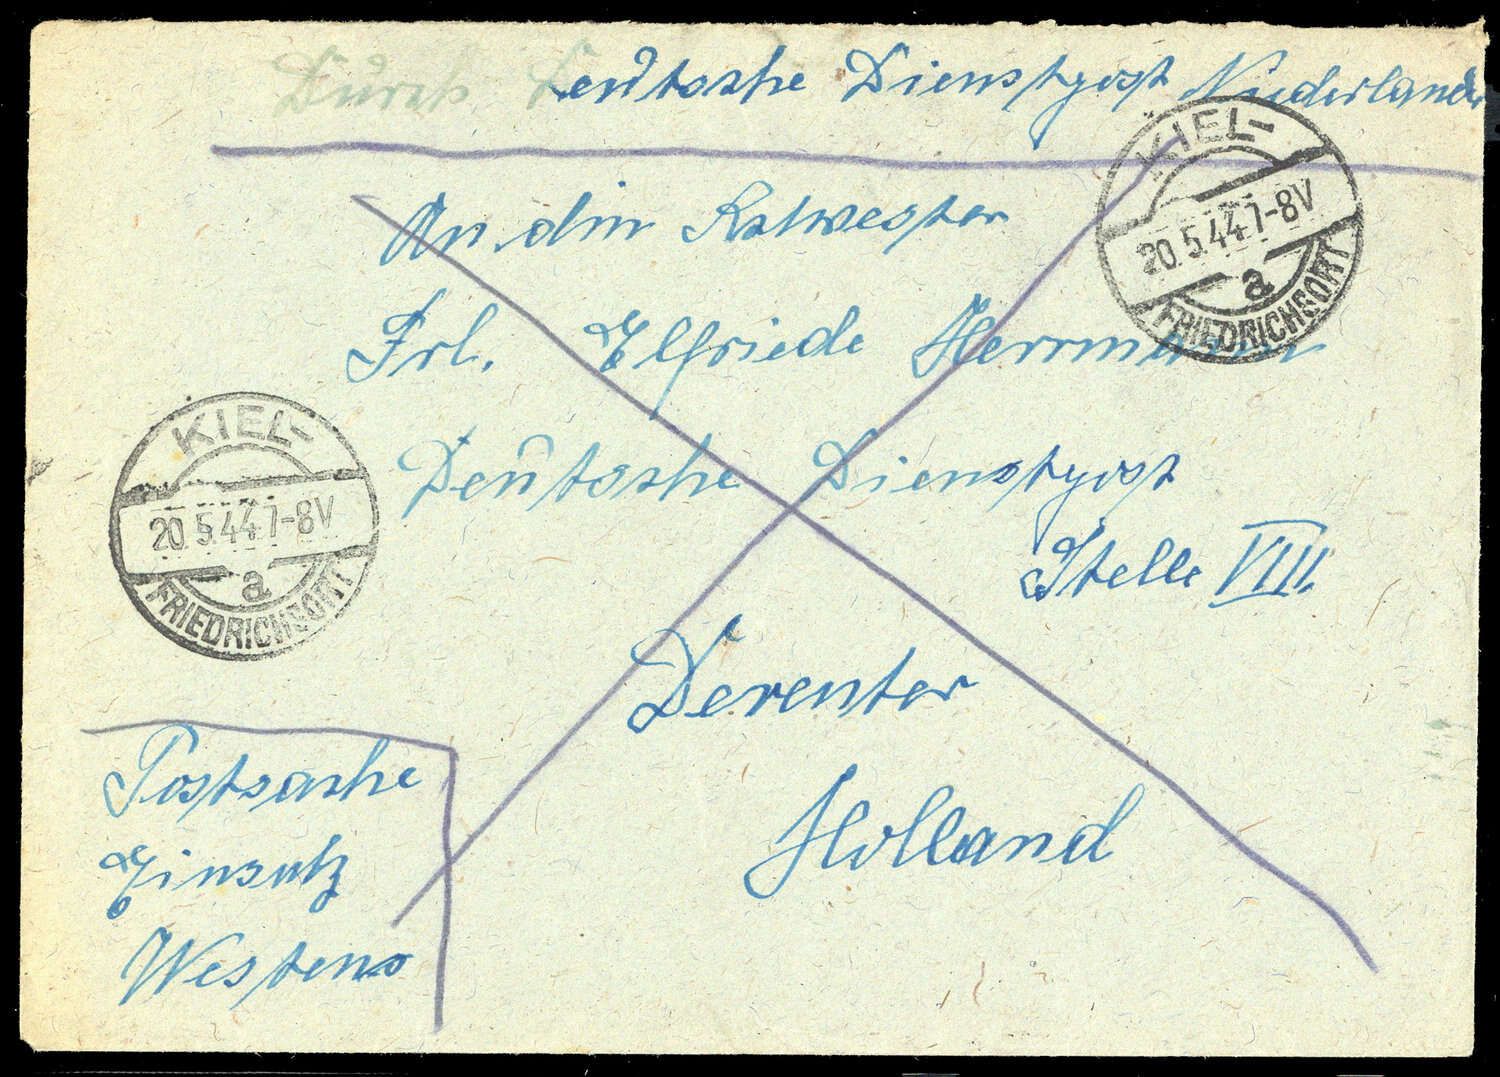 Durch Deutsche Dienstpost Niederlande
KIEL-
20.5.44.7-8V
a
FRIEDRICHSORT
An din
Frl. Elfriede Herrmann
Deutsche Dienstpost
Stelle VIII.
KIEL-
20.5.44.7-8V
a
FRIEDRICHSORT
Deventer
Holland
Postsache
Einsatz
Westens